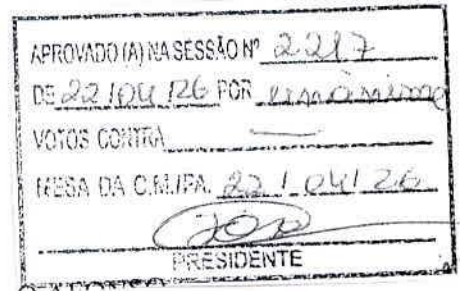 APROVADO (A) NA SESSÃO Nº 2217
DE 22/04/26 POR unânime
VOTOS CONTRA —
MESA DA C.M.IPA. 22/04/26
PRESIDENTE